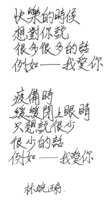 快樂的時候
想對你說
很多很多的話
例如──我愛你
疲倦時
緩緩閉上眼時
只想說很少
很少的話
例如──我愛你
林婉瑜